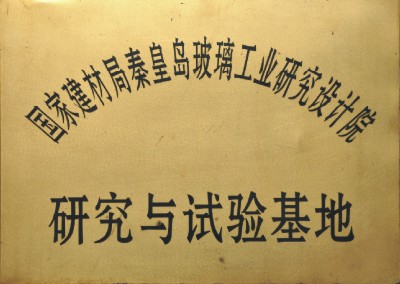 国家建材局秦皇岛玻璃工业研究设计院
研究与试验基地